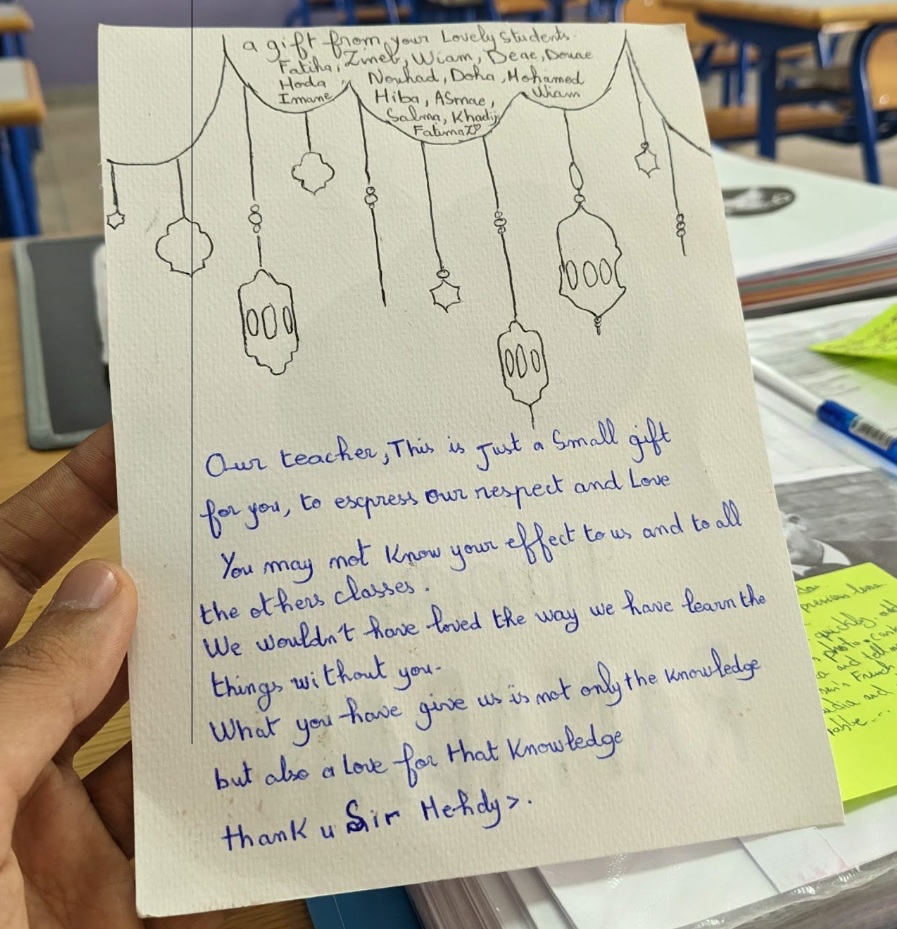 a gift from your Lovely Students.
Fatiha, Zineb, Wiam, Deae, Douae
Hoda Nouhad, Doha, Mohamed
Imane Hiba, ASmae, Wiam
Salma, Khadij
FatimaZ
Our teacher, This is Just a Small gift
for you, to escpress our respect and Love
You may not know your effect to us and to all
the others classes.
We wouldn't have loved the way we have learn the
things without you.
What you have give us is not only the knowledge
but also a Love for that Knowledge
thank u Sir Mehdy>.
quickly
photo
and tell
French
and